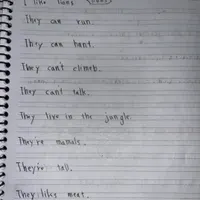 I like lions
They can run.
They can hant.
They can't climeb.
They can't talk.
They live in the jongle.
They're mamals.
They're tall.
They like meat.